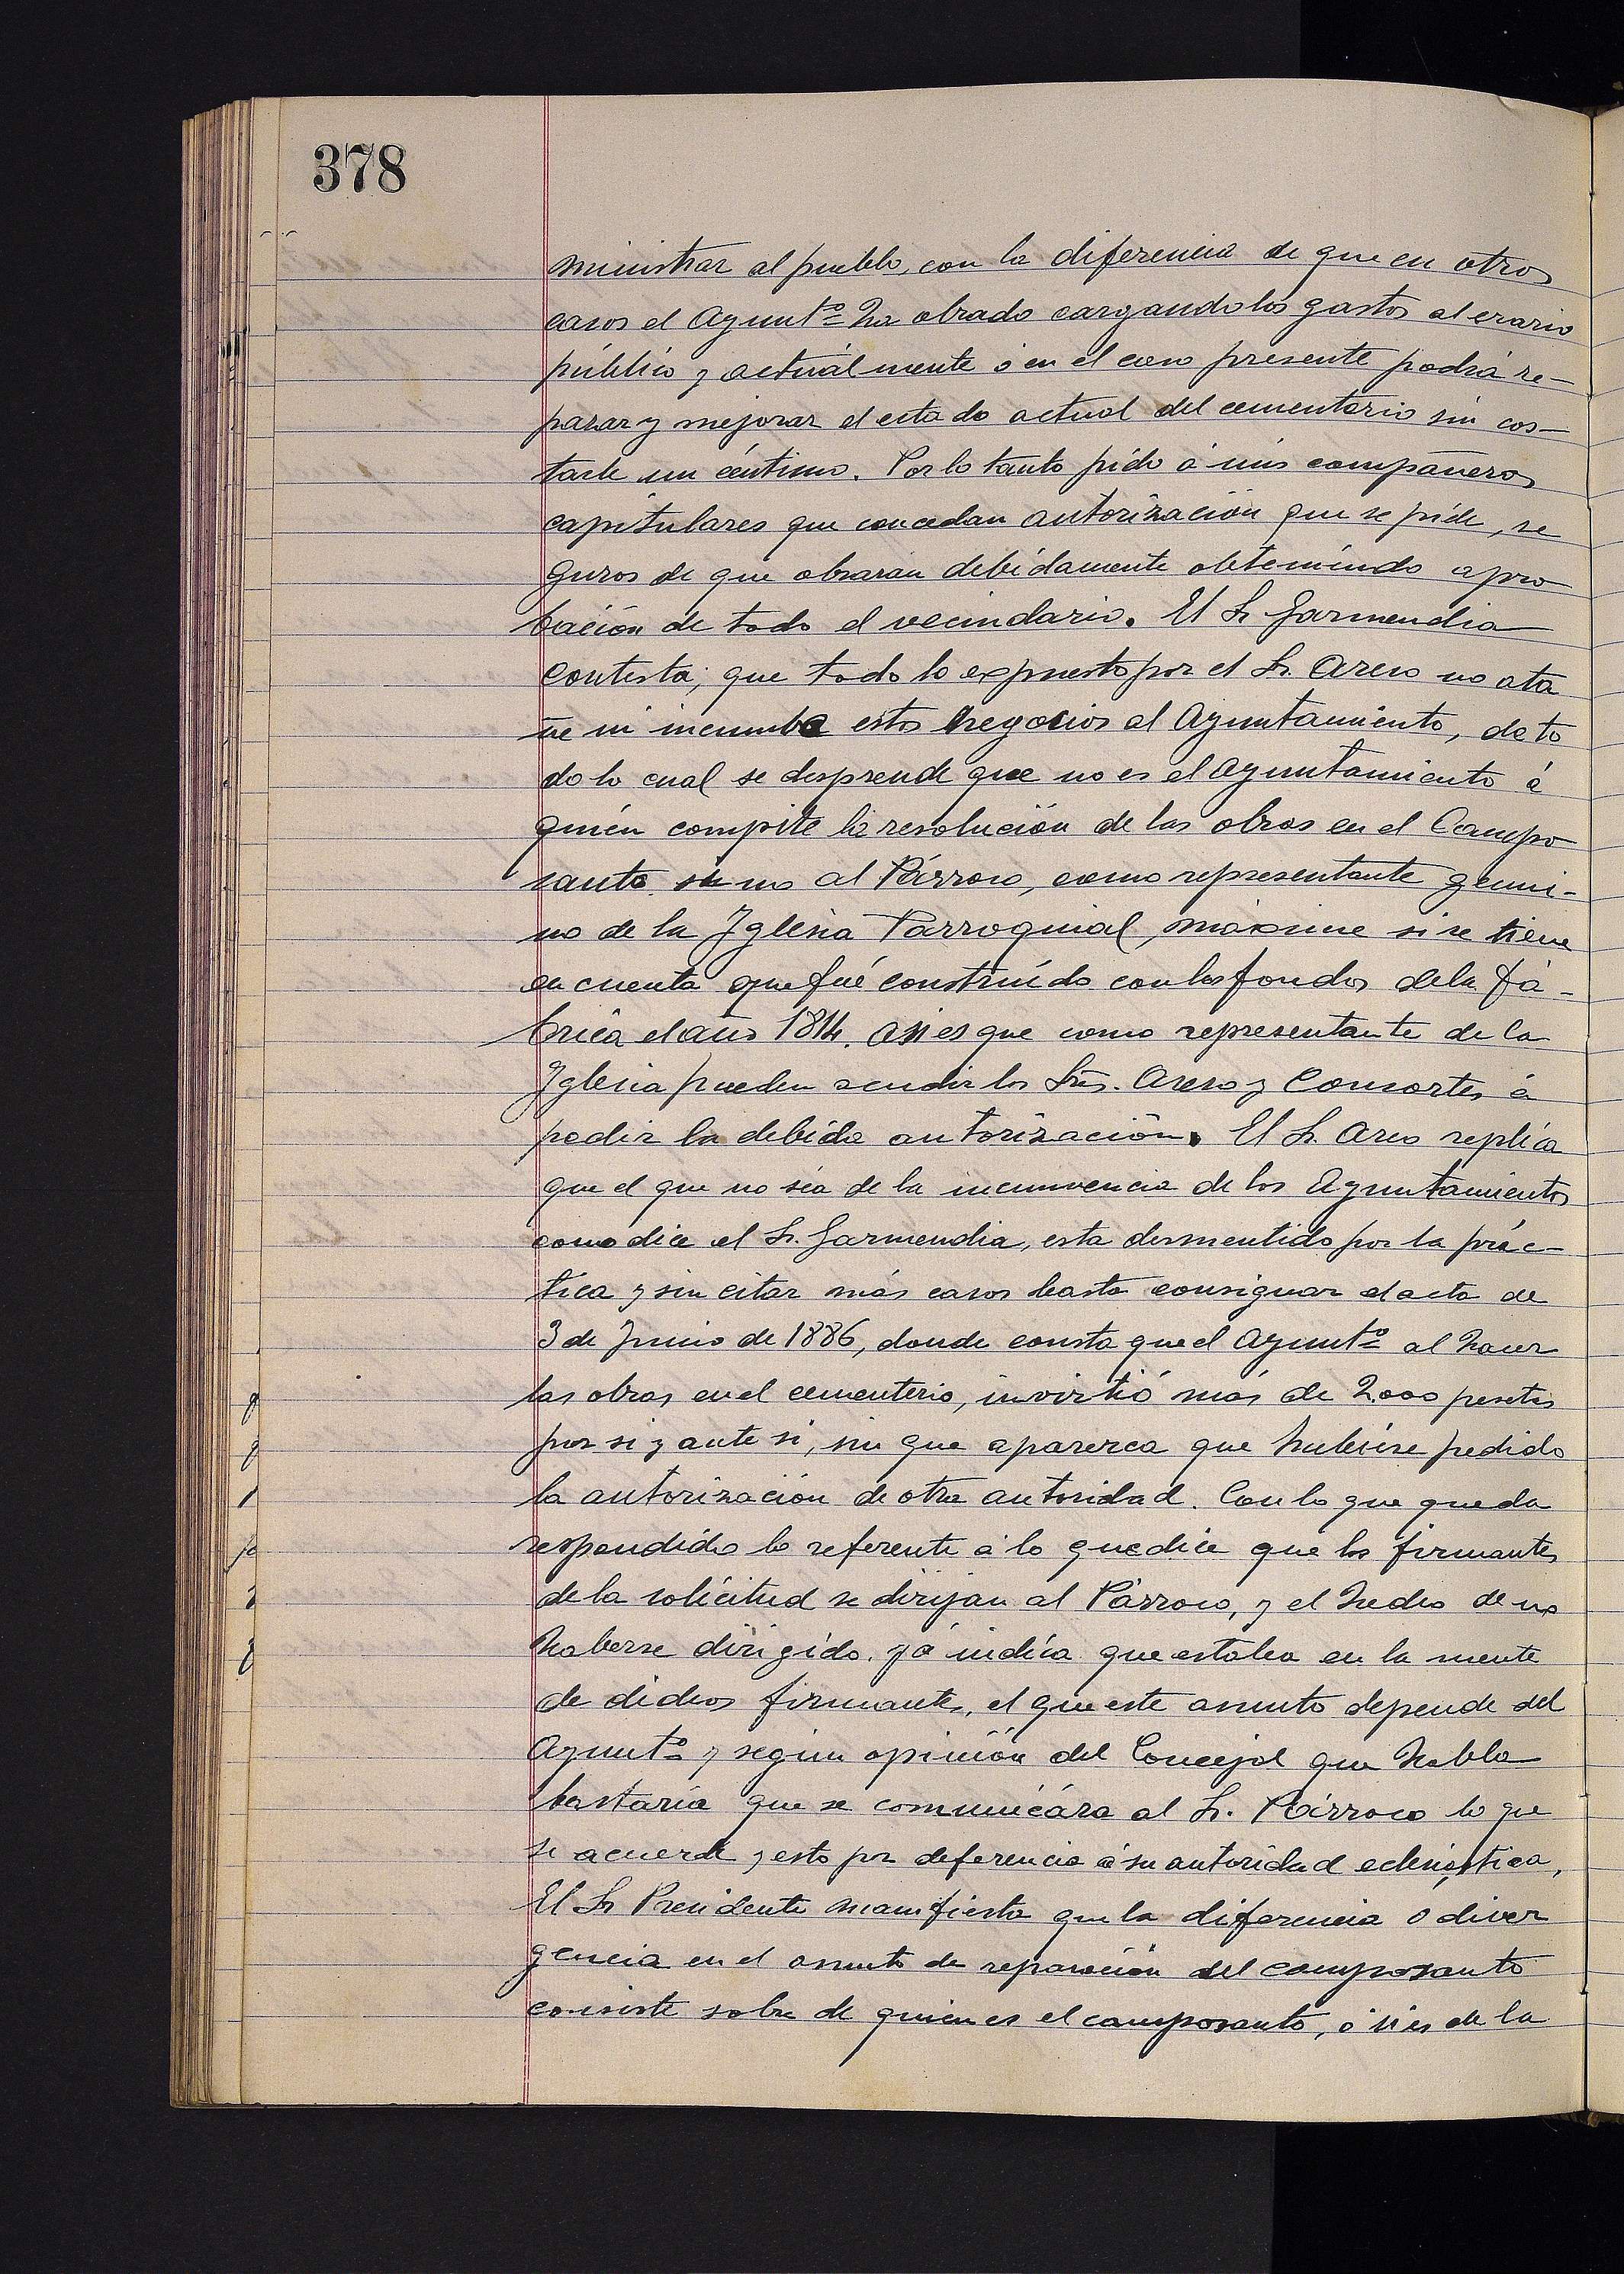 378
ministrar al pueblo, con la diferencia de que en otros
casos el Ayuntº ha obrado cargando los gastos al erario
público y actuálmente ó en el caso presente podrá re-
parar y mejorar el estado actual del cementerio sin cos-
tarle un céntimo. Por lo tanto pido á mis compañeros
capitulares que concedan autorización que se pide, se
guros de que obrarán debidamente obteniendo apro
bación de todo el vecindario. El Sr Garmendia
contesta; que todo lo expuesto por el Sr. Areso no ata
ñe ni incumbe estos negocios al Ayuntamiento, de to
do lo cual se desprende que no es el Ayuntamiento á
quién compete la resolución de las obras en el Campo
santo sino al Párroco, como representante genui-
no de la Iglesia Parroquial, máxime si se tiene
en cuenta que fué construído con los fondos de la fá-
brica el año 1814. Asi es que como representante de la
Iglesia pueden acudir los Sres. Areso y Consortes á
pedir la debida autorización. El Sr. Areso replica
que el que no sea de la incunvencia de los Ayuntamientos
como dice el Sr. Garmendia, esta desmentido por la prác-
tica y sin citar más casos basta consignar el acta de
3 de Junio de 1886, donde consta que el Ayuntº al hacer
las obras en el cementerio, invirtió más de 2.000 pesetas
por si y ante si, sin que aparezca que hubiere pedido
la autorización de otra autoridad. Con lo que queda
respondido lo referente á lo que dice que los firmantes
de la solicitud se dirijan al Párroco, y el hecho de no
haberse dirigido ya indica que estaba en la mente
de dichos firmantes, el que este asunto depende del
Ayuntº y según opinión del Concejal que habla
bastaría que se comunicára al Sr. Párroco lo que
se acuerde y esto por deferencia á su autoridad eclesiástica,
El Sr Presidente manifiesta que la diferencia o diver
gencia en el asunto de reparación del camposanto
consiste sobre de quien es el camposanto, ó si es de la